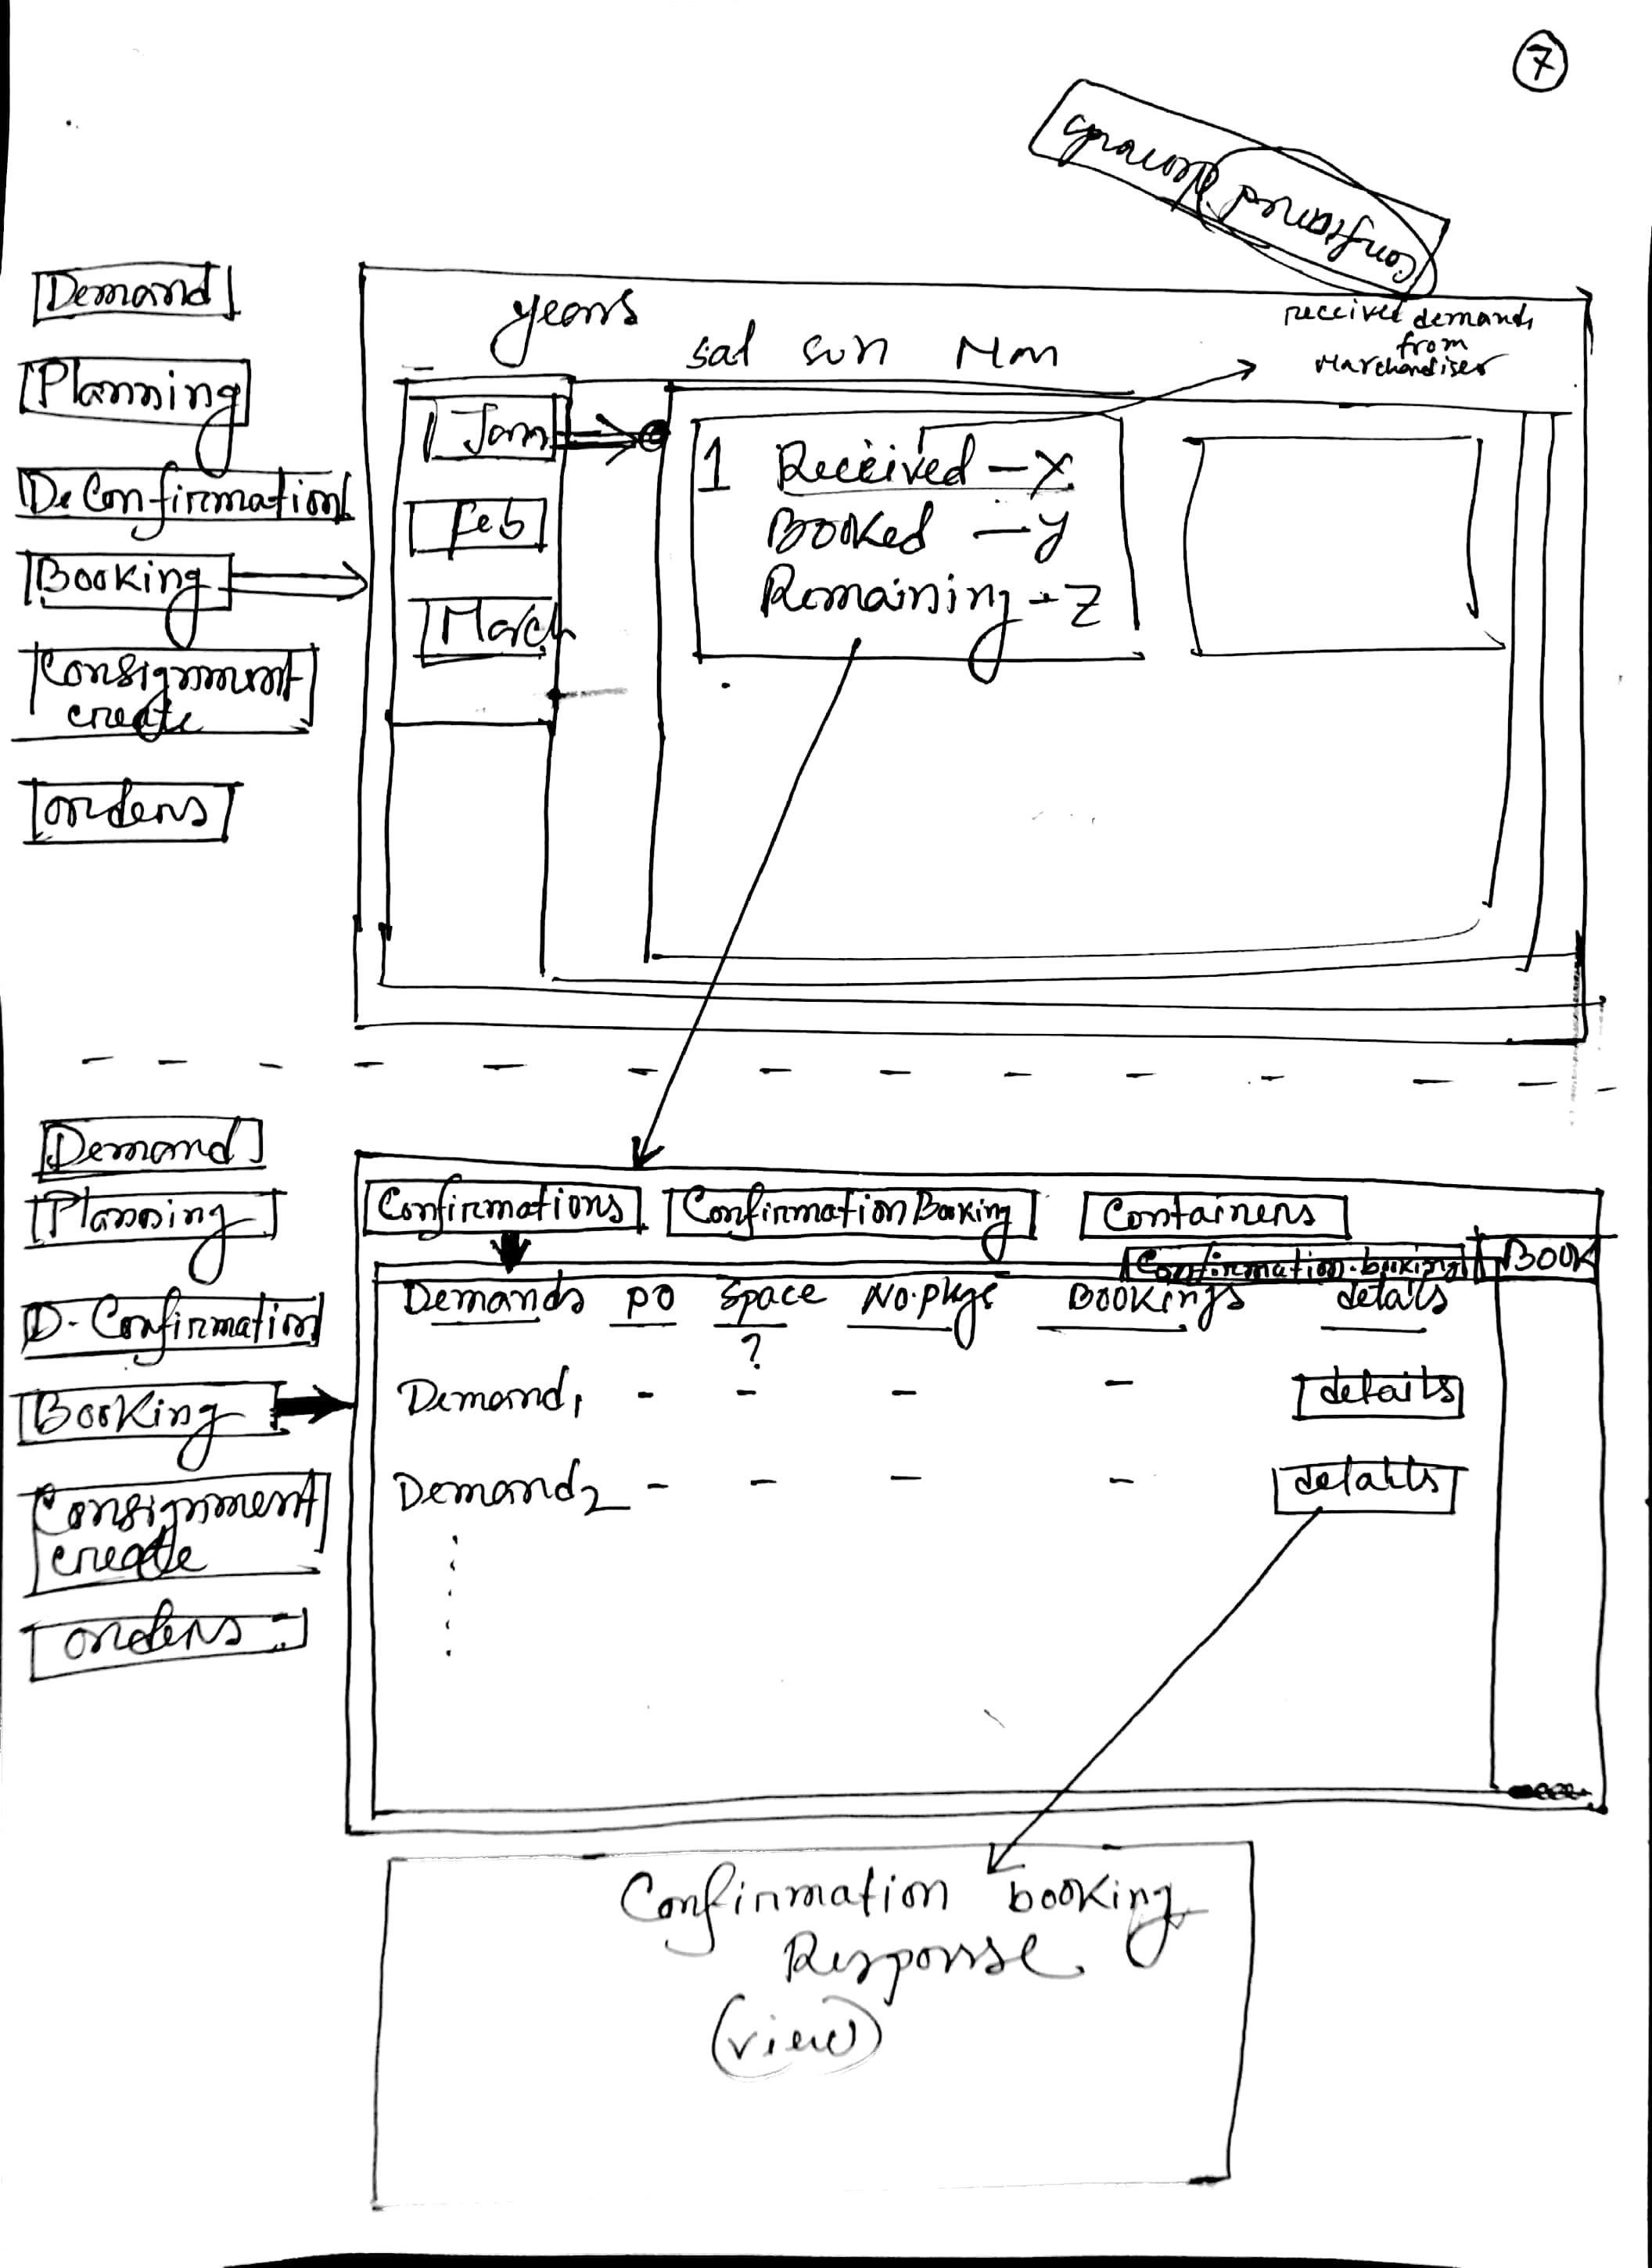 7
Confirmed Demands
Demand
Planning
D. Confirmation
Booking
Consignment
create
orders
years
sat sun Mon
received demands
from
Marchandiser
Jan
Feb
March
1 Received - X
Booked - y
Remaining - Z
Demand
Planning
D. Confirmation
Booking
Consignment
create
orders
Confirmations Confirmation Booking Containers
Confirmation-booking BOOK
Demands PO Space No.pkgs Bookings details
?
Demand1 - - - - details
Demand2 - - - - details
Confirmation booking
Response
(view)